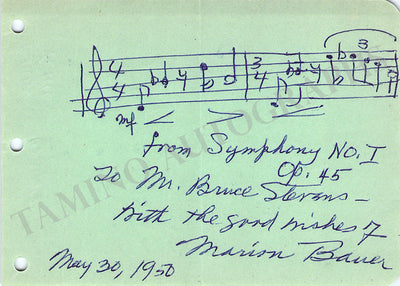 4 4 3 4 3
mf
from Symphony No. I
Op. 45
To Mr. Bruce Stevens –
With the good wishes of
Marion Bauer
May 30, 1950
TAMINO AUTOGRAPHS